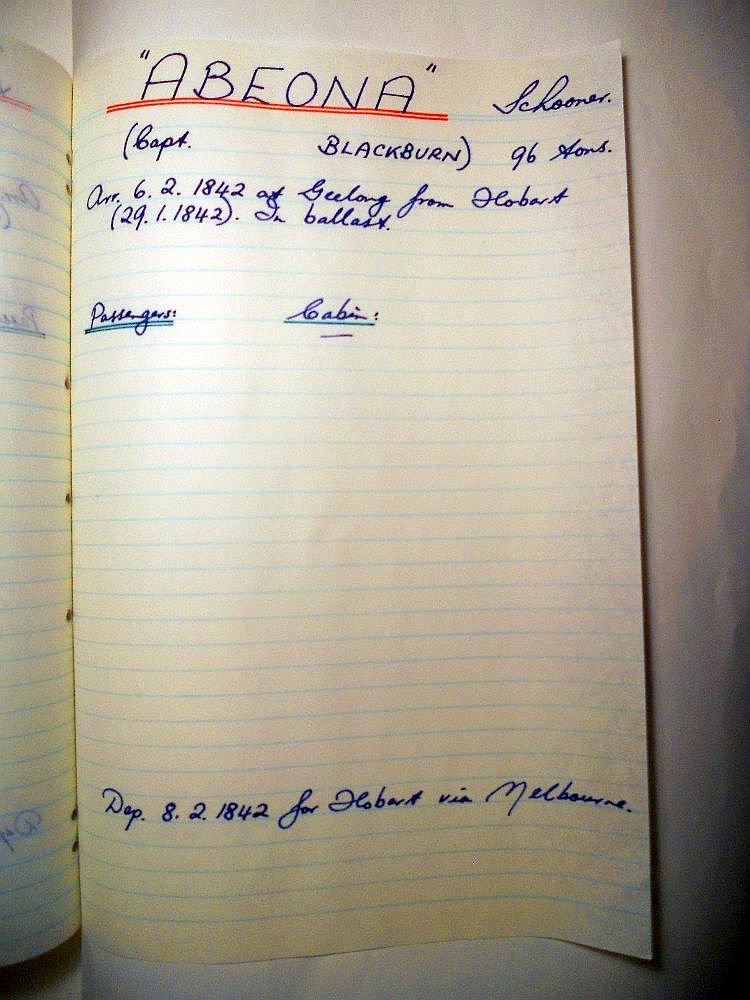 "ABEONA" Schooner.
(Capt. BLACKBURN) 96 tons.
Arr. 6. 2. 1842 at Geelong from Hobart
(29.1.1842). In ballast.
Passengers: Cabin:
—
Dep. 8. 2. 1842 for Hobart via Melbourne.